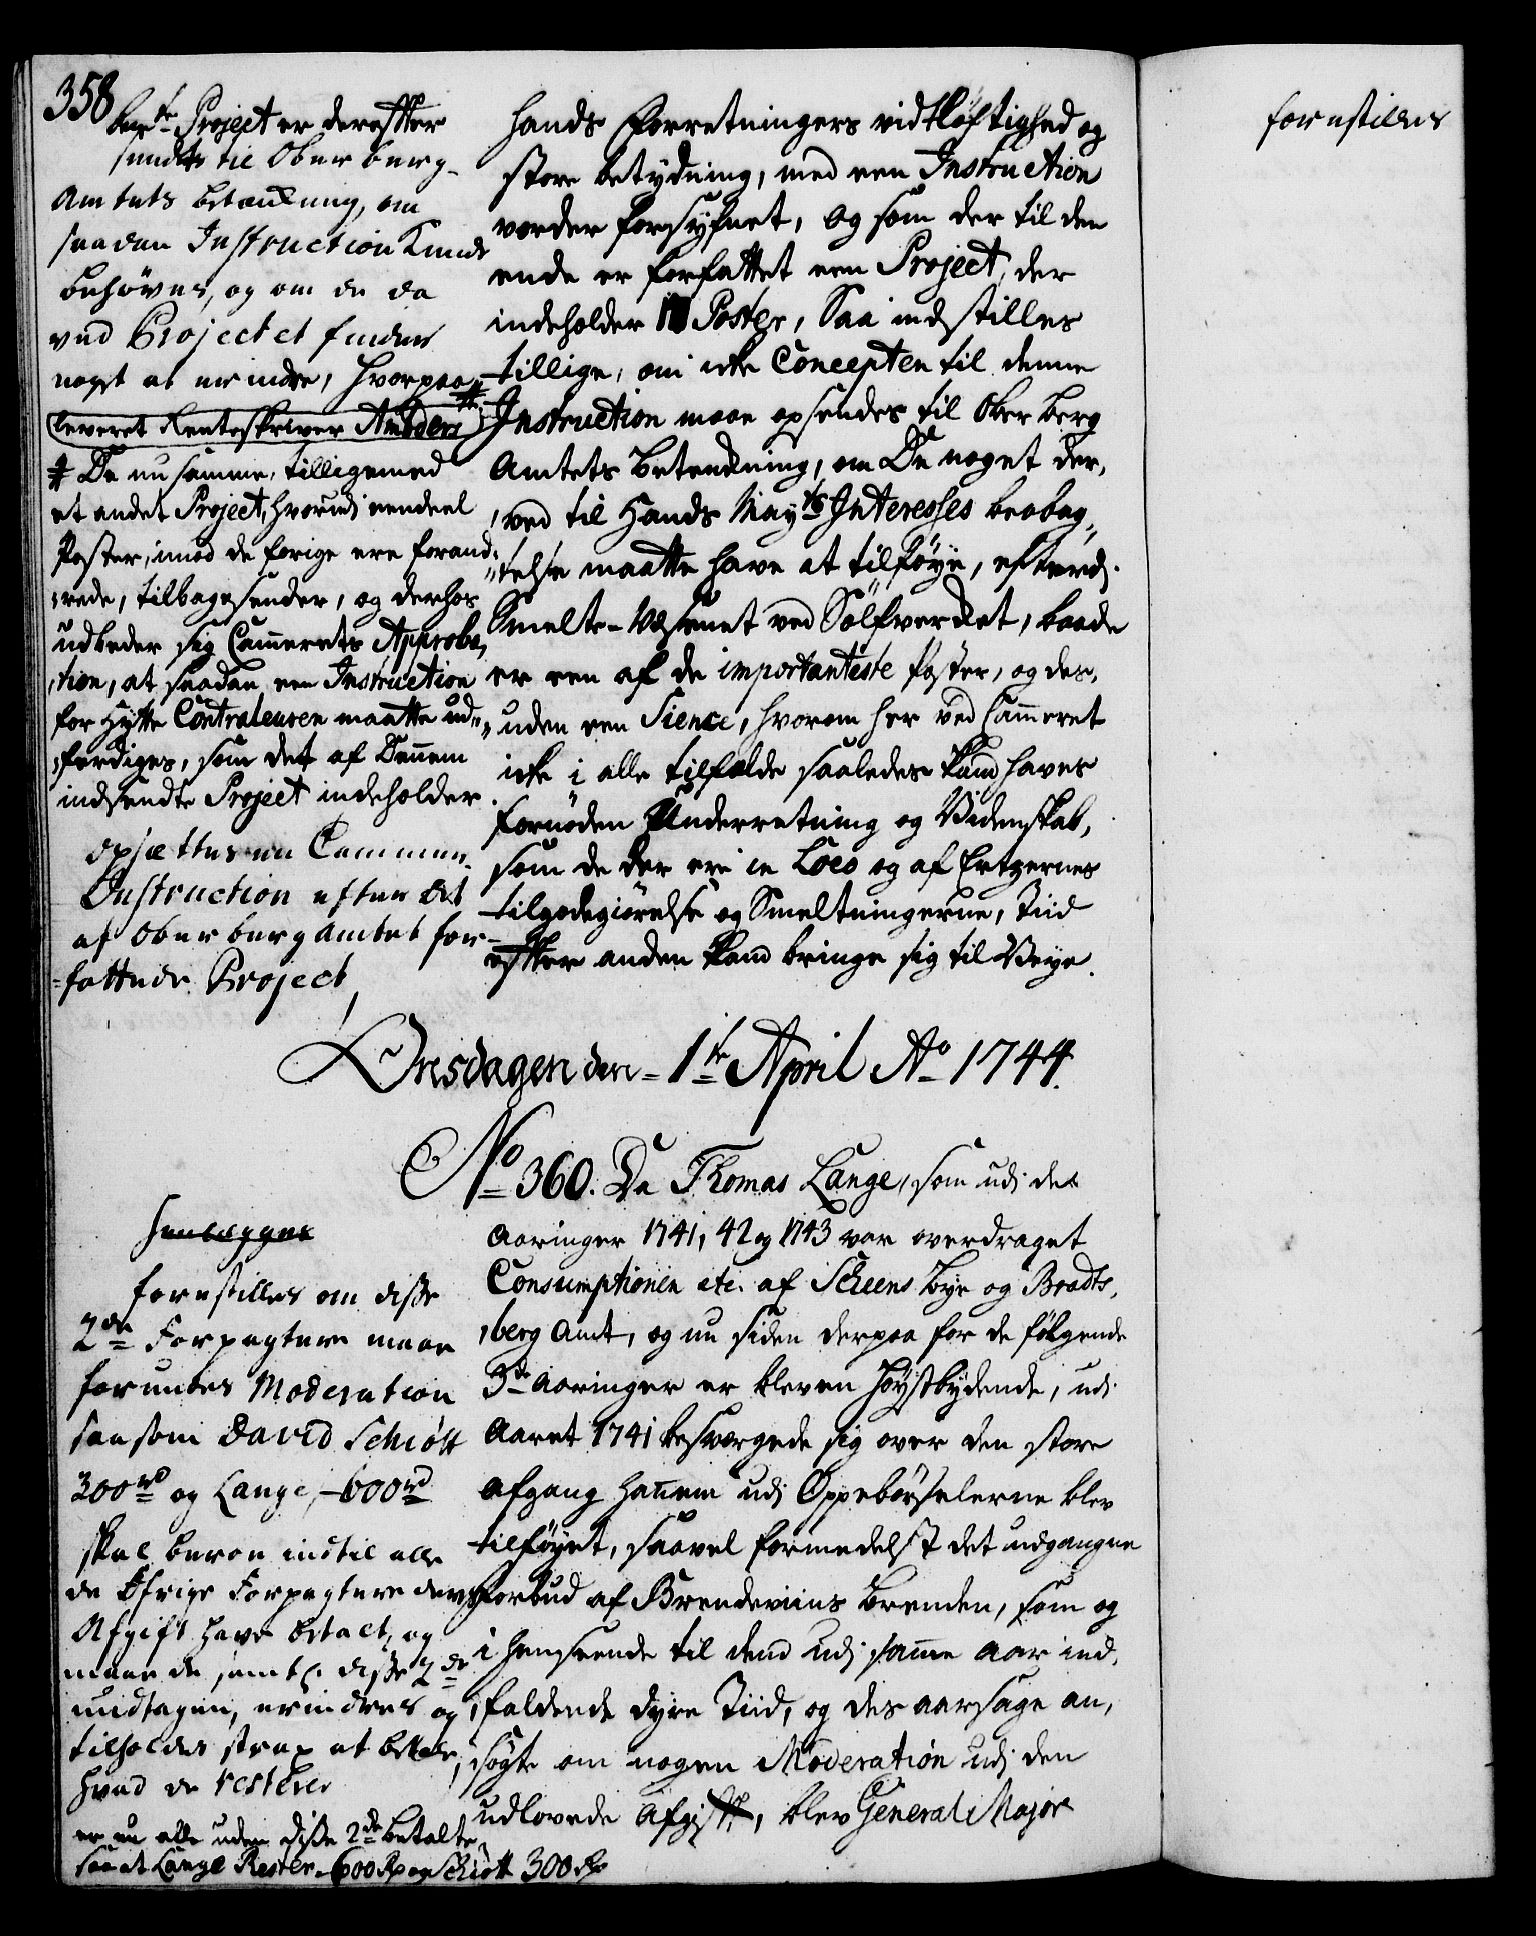 358
bem.te Project er derefter
sendt til Ober berg-
Amtets betænkning, om
saadan Instruction kunde
behøves, og om de da
ved Projectet finder
noget at erindre, hvorpaa
leveret Renteskriver
# Da nu samme, tilligemed
et andet Project, hvorudi eendeel
Poster, imod de forige ere forand-
rede, tilbagesender, og derhos
udbeder sig Cammerets Approba-
tion, at saadan een Instruction
for Hytte Contraleuren maatte ud-
ferdiges, som det af Dennem
indsendte Project indeholder.
opsættes en
Instruction efter det
af Oberbergamtet for-
fattede Project,
hands Forretningers vidtløftighed og
store betydning, med een Instruction
vorder forsyhnet, og som der til den
ende er forfattet een Project, der
indeholder Poster, Saa indstilles
tillige, om icke Concepten til denne
Instruction maae opsendes til Ober berg
Amtets betænkning, om De noget der-
ved til Hands Mayts Interesses beobag-
telse maatte have at tilføye, efterdj
Smelte-Væsenet ved Sølfverket, baade
er een af de importanteste Poster, og des-
uden een Sience, hvorom her ved Cammeret
icke i alle tilfælde saaledes kand haves
fornøden Underretning og Videnskab,
som de der ere in Loco og af Ertzernes
tilgodegiørelse og Smeltningerne, Tiid
efter anden kand bringe sig til Veye.
Onsdagen den 1te April Ao 1744.
No 360. Da Thomas Lange, som udj de
Aaringer 1741, 42 og 1743 var overdraget
Consumptionen etc. af Scheens Bye og Bradts-
berg Amt, og nu siden derpaa for de følgende
3de Aaringer er bleven høystbydende, udj
Aaret 1741 besværgede sig over den store
afgang hannem udj Oppebørselerne blev
tilføyet, saavel formedelst det udgangne
forbud af Brendeviins Brenden, som og
i henseende til dend udj samme Aar ind-
faldende dyre Tiid, og des aarsage an-
søgte om nogen Moderation udj den
udlovede Afgift, blev General Major
henlægges
forestilles om disse
2de Forpagtere maae
forundes Moderation
saasom David Schiøtt
300 rd og Lange, 600 rd
skal beroe indtil alle
de øfrige Forpagtere deres
Afgift have betalt, og
maae de samtl. disse 2de
undtagen, erindres og
tilholdes strax at betale,
hvad de resterer
er nu alle uden disse 2de betalte,
saa at Lange Rester 600 Rd og Schiøtt 300 Rd
forestilles